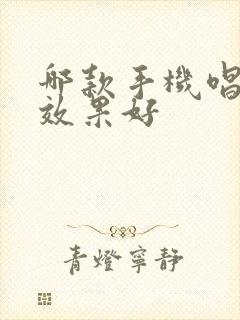 哪款手機唱
效果好
青燈寧靜